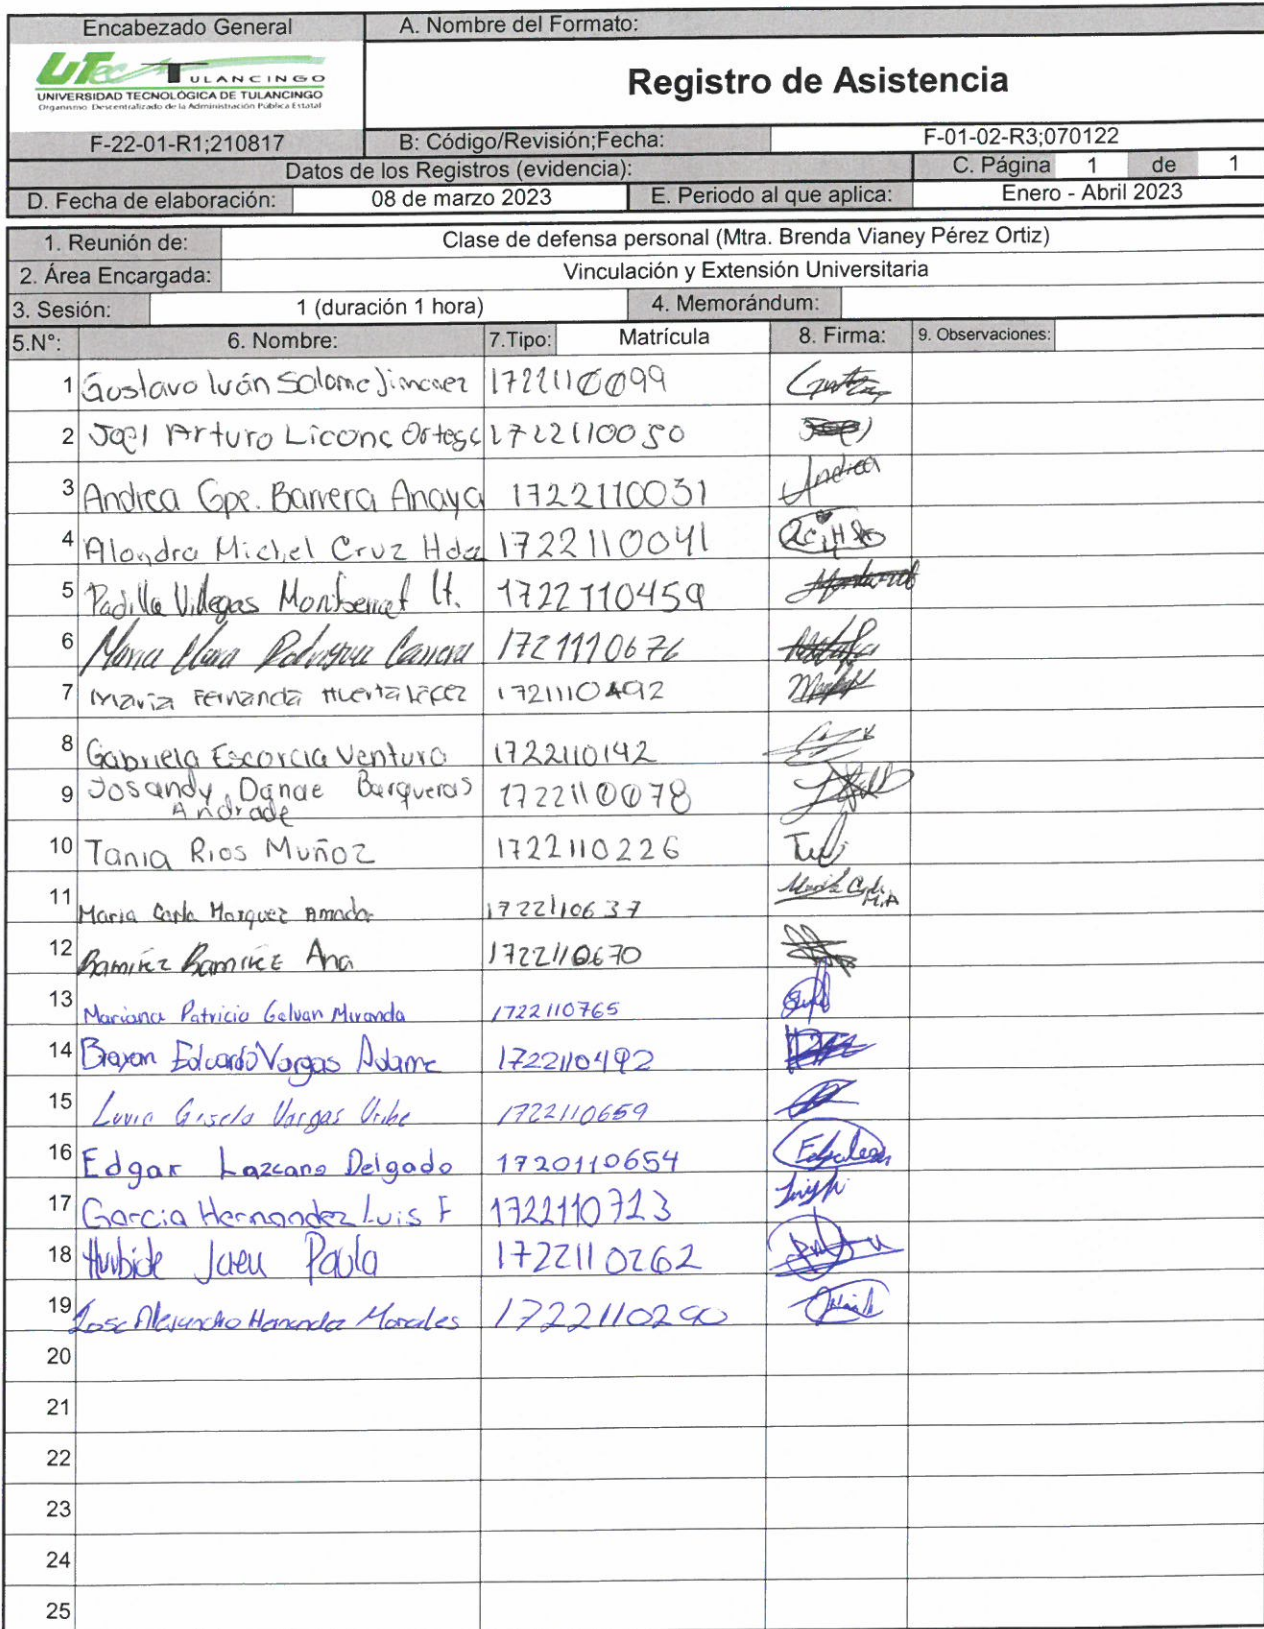 Encabezado General
A. Nombre del Formato:
UTec TULANCINGO
UNIVERSIDAD TECNOLÓGICA DE TULANCINGO
Organismo Descentralizado de la Administración Pública Estatal
Registro de Asistencia
F-22-01-R1;210817
B: Código/Revisión;Fecha:
F-01-02-R3;070122
Datos de los Registros (evidencia):
C. Página 1 de 1
D. Fecha de elaboración: 08 de marzo 2023 E. Periodo al que aplica: Enero - Abril 2023
1. Reunión de: Clase de defensa personal (Mtra. Brenda Vianey Pérez Ortiz)
2. Área Encargada: Vinculación y Extensión Universitaria
3. Sesión: 1 (duración 1 hora) 4. Memorándum:
5.N°: 6. Nombre: 7.Tipo: Matrícula 8. Firma: 9. Observaciones:
1 Gustavo Iván Salome Jimenez 1722110099
2 Joel Arturo Licona Ortega 1722110050
3 Andrea Gpe. Barrera Anaya 1722110031 Andrea
4 Alondra Michel Cruz Hdez 1722110041
5 Padilla Villegas Montserrat 1722110459
6 Maria Rodriguez 1721110676
7 Maria Fernanda Huerta López 1721110492
8 Gabriela Escorcia Ventura 1722110142
9 Josandy Danae Barqueras
Andrade 1722110078
10 Tania Rios Muñoz 1722110226
11 Maria Carla Marquez Amador 1722110637
12 Ramirez Ramirez Ana 1722110670
13 Mariana Patricio Galvan Miranda 1722110765
14 Brayan Eduardo Vargas Adame 1722110492
15 Gisela Vargas Uribe 1722110659
16 Edgar Lazcano Delgado 1720110654
17 Garcia Hernandez Luis F 1722110713
18 Paula 1722110262
19 Jose Alejandro Hernandez Morales 1722110290
20
21
22
23
24
25